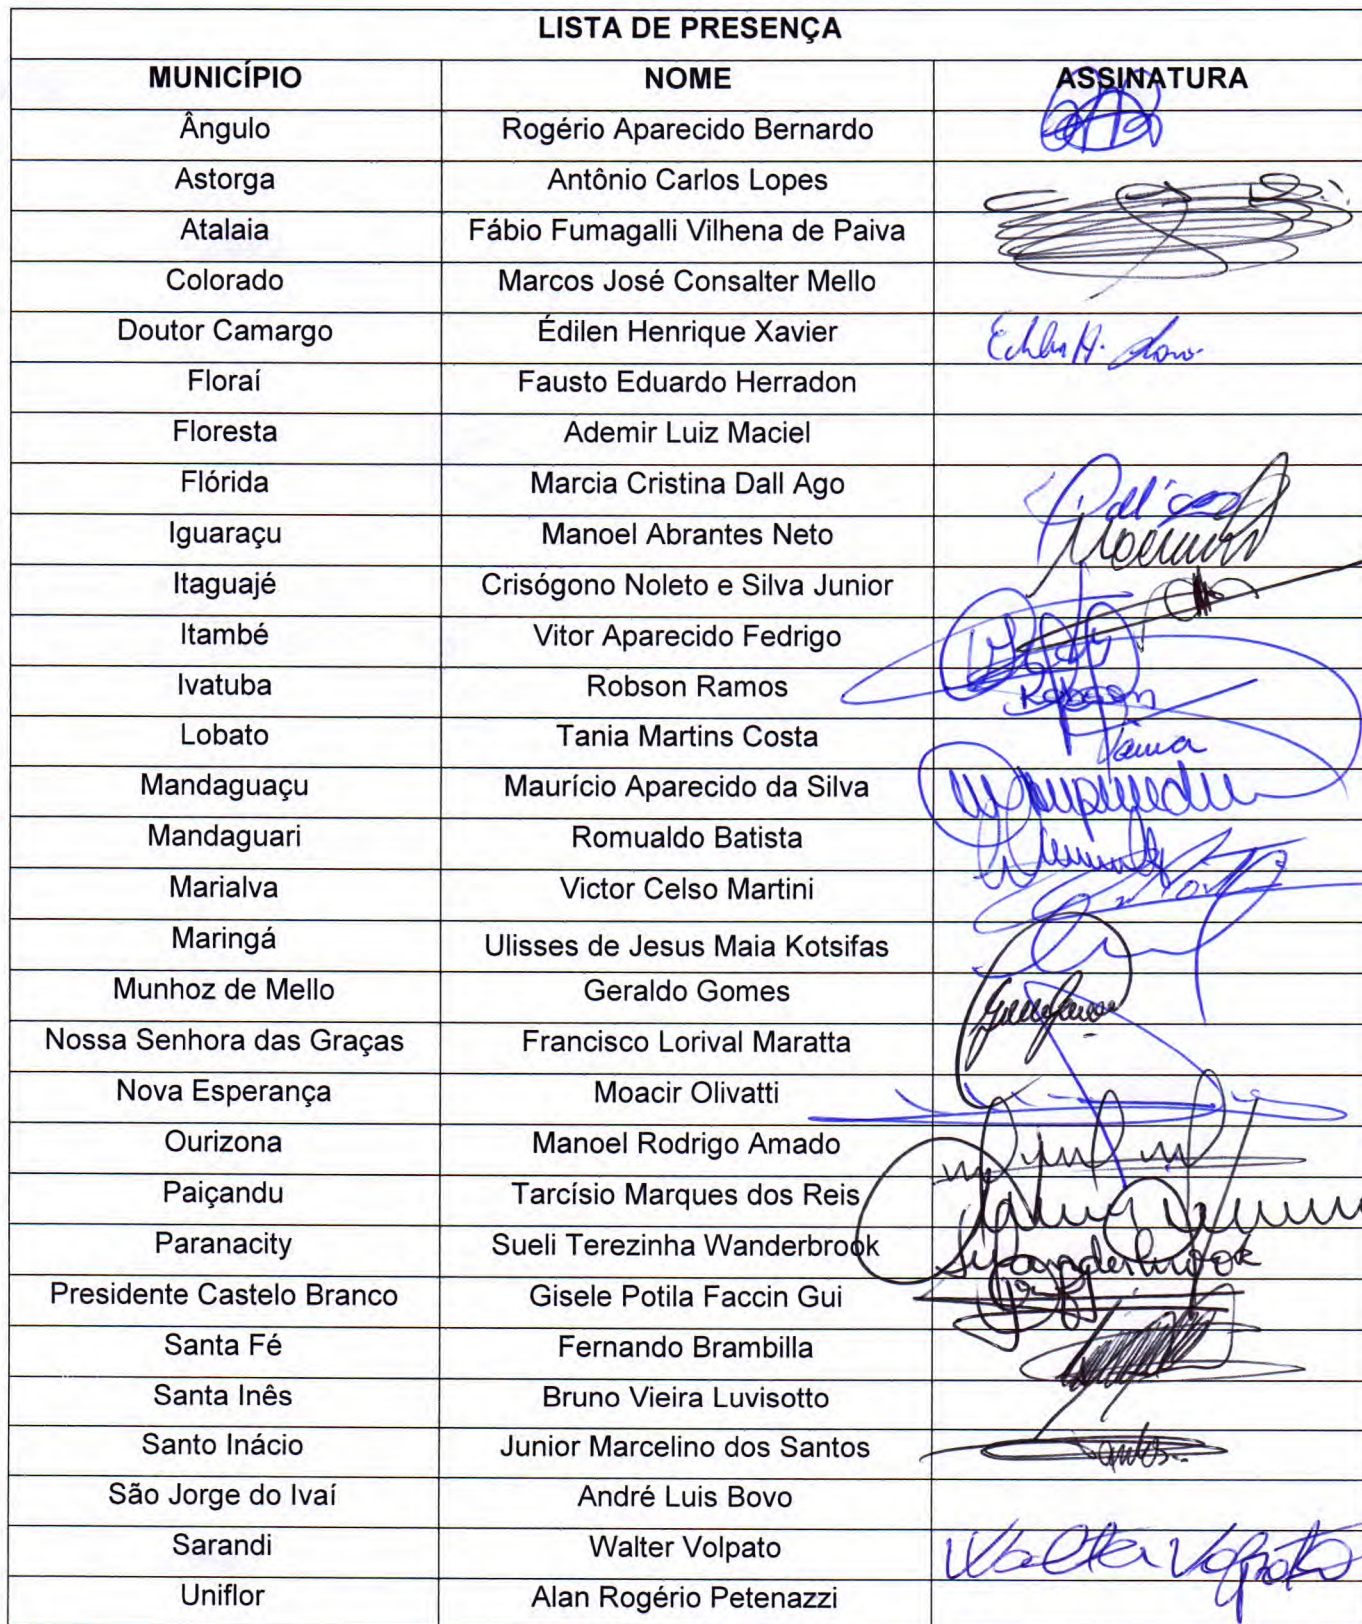 LISTA DE PRESENÇA
MUNICÍPIO NOME ASSINATURA
Ângulo Rogério Aparecido Bernardo
Astorga Antônio Carlos Lopes
Atalaia Fábio Fumagalli Vilhena de Paiva
Colorado Marcos José Consalter Mello
Doutor Camargo Édilen Henrique Xavier
Floraí Fausto Eduardo Herradon
Floresta Ademir Luiz Maciel
Flórida Marcia Cristina Dall Ago
Iguaraçu Manoel Abrantes Neto
Itaguajé Crisógono Noleto e Silva Junior
Itambé Vitor Aparecido Fedrigo
Ivatuba Robson Ramos Robson
Lobato Tania Martins Costa Tania
Mandaguaçu Maurício Aparecido da Silva
Mandaguari Romualdo Batista
Marialva Victor Celso Martini
Maringá Ulisses de Jesus Maia Kotsifas
Munhoz de Mello Geraldo Gomes
Nossa Senhora das Graças Francisco Lorival Maratta
Nova Esperança Moacir Olivatti
Ourizona Manoel Rodrigo Amado
Paiçandu Tarcísio Marques dos Reis
Paranacity Sueli Terezinha Wanderbrook Wanderbrook
Presidente Castelo Branco Gisele Potila Faccin Gui
Santa Fé Fernando Brambilla
Santa Inês Bruno Vieira Luvisotto
Santo Inácio Junior Marcelino dos Santos
São Jorge do Ivaí André Luis Bovo
Sarandi Walter Volpato Walter Volpato
Uniflor Alan Rogério Petenazzi